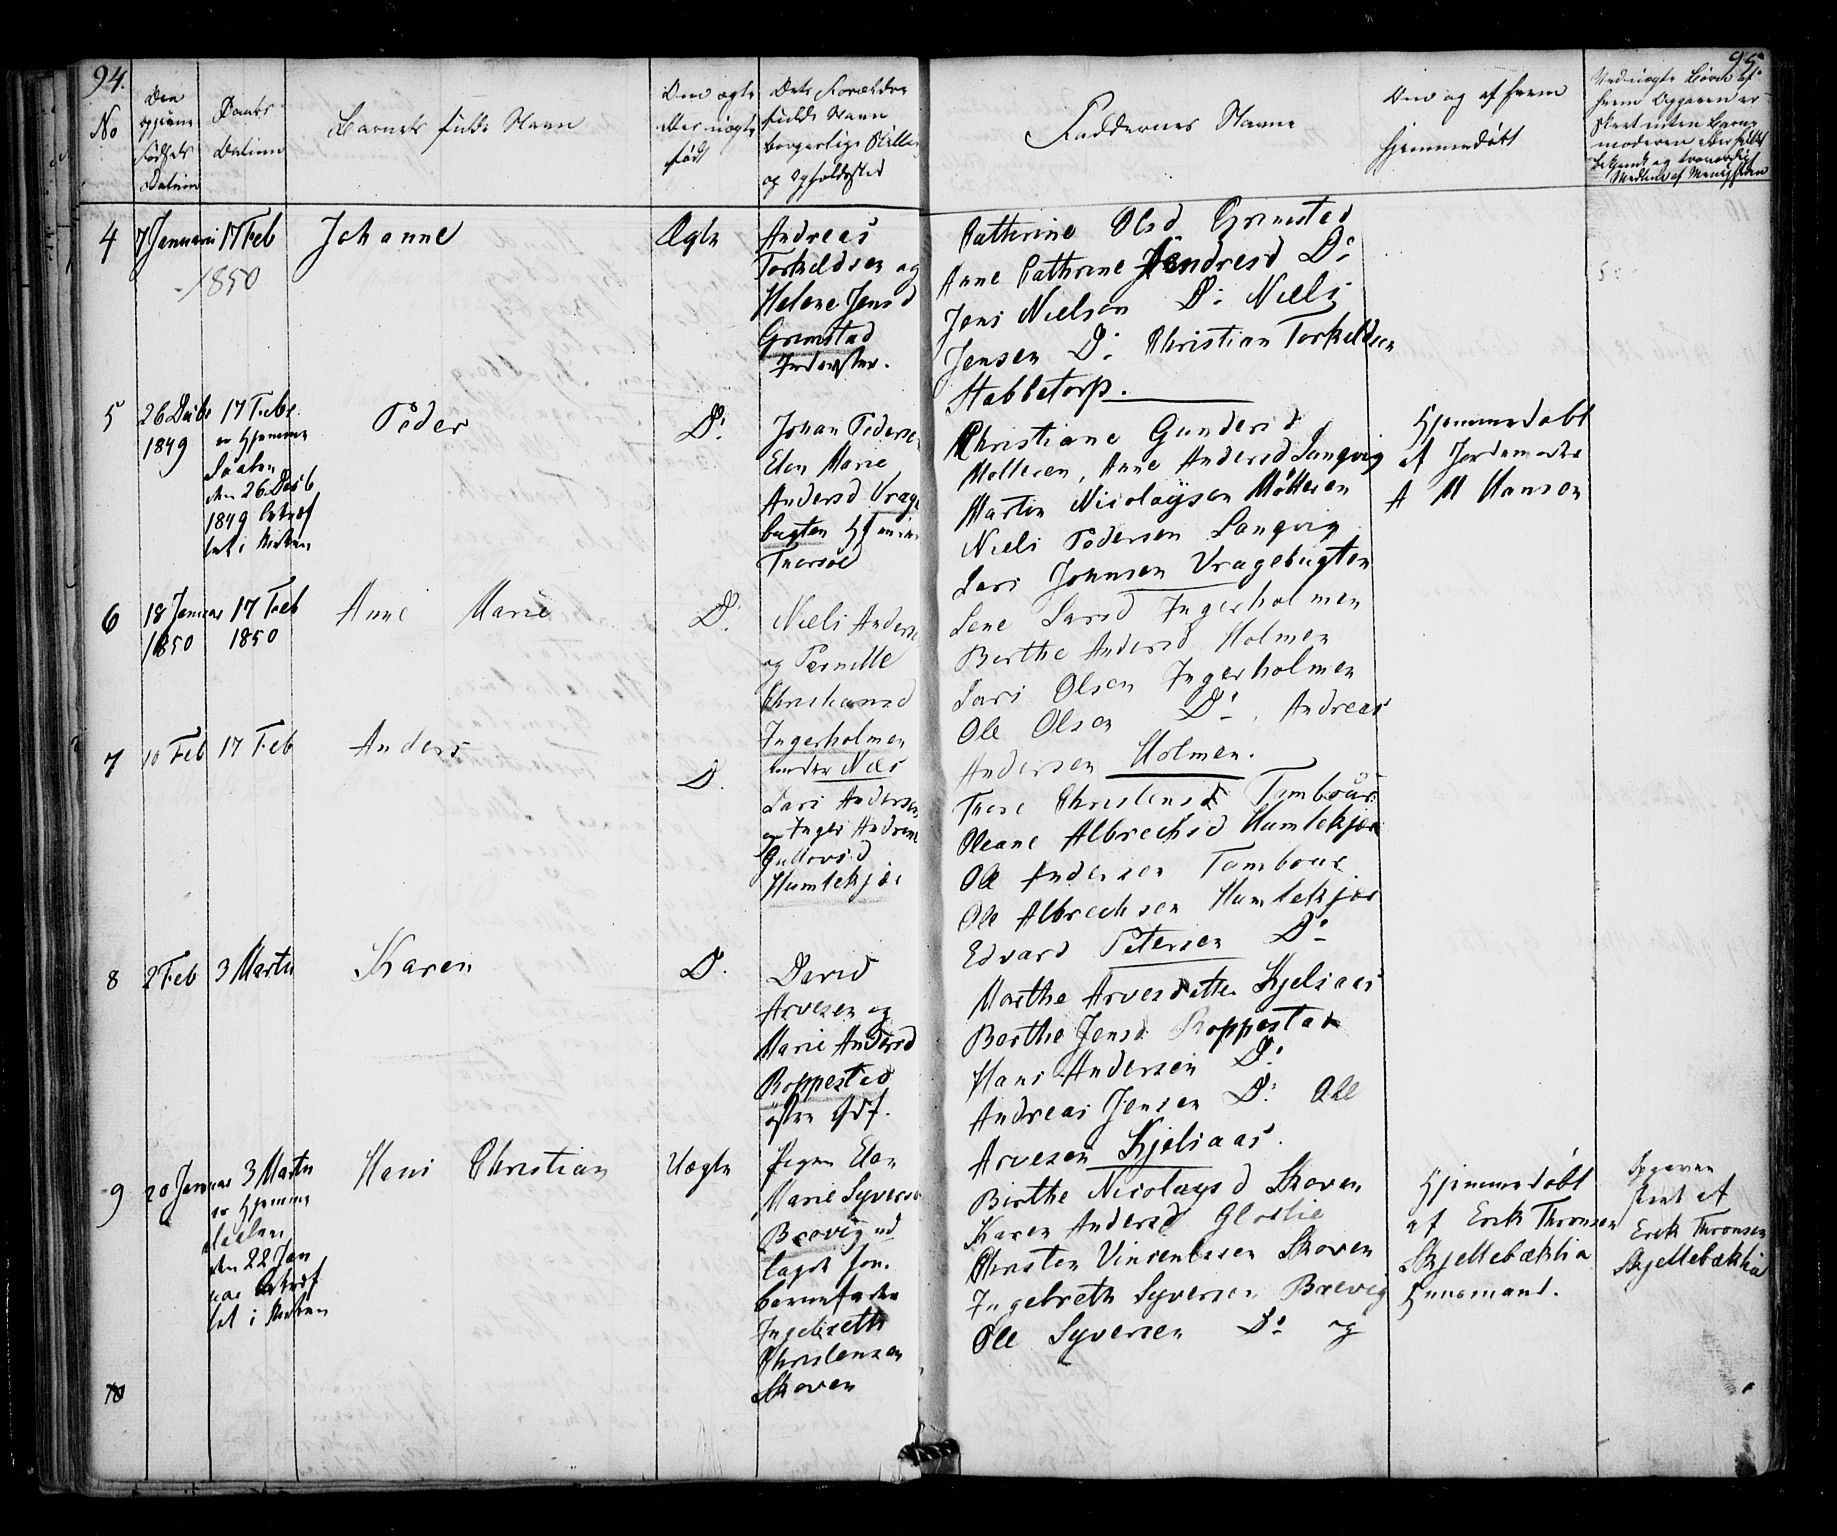 94.
95
No
Den
opgivne
Fødsels
Datum
Daabs
Datum
Barnets fulde Navn
Om ægte
eller uægte
født
Dets Forældre
fulde Navn
borgerlige Stilling
og Opholdssted
Faddernes Navne
Om og af hvem
hjemmedøbt
Ved uægte Børn af
hvem Opgaven er
skeet enten Barne
moderen eller heldst
bekjendt og troværdigt
Medlem af Menigheden
4
7 Januari
17 Feb
1850
Johanne
Ægte
Andreas
Torkeldsen og
Helene Jensd
Grimstad
Inderster.
Cathrine Olsd Grimstad
Anne Cathrine Andresd Do
Jens Nielsen Do Niels
Jensen Do Christian Torkeldsen
Stabbetorp.
5
26 Decbr
1849
17 Febr
er hjemme
døbten
den 26 Decb
1849 bekræf
tet i Kirken
Peder
Do
Johan Pedersen
Elen Marie
Andersd Vrage
bugten Hjem i
Thorsøe
Christiane Gundersd
Molteren, Anne Andersd Langvig
Martin Nicolaysen Møtteren
Niels Pedersen Langvig
Lars Johnsen Vragebugten
Hjemmedøbt
af Jordemoder
A M Hansen
6
18 Januar
1850
17 Feb
1850
Anne Marie
Do
Niels Andersen
og Pernille
Christiansd
Ingerholmen
under Næs
Lene Larsd Ingerholmen
Berthe Andersd Holmen
Lars Olsen Ingerholmen
Ole Olsen Do, Andreas
Andersen Holmen.
7
10 Feb
17 Feb
Anders
D.
Lars Andersen
og Inger Andrine
Gulovsd
Humlekjær
There Christensd Tambour
Oleane Albrechsd Humlekjær
Ole Andersen Tambour
Ole Albrechsen Humlekjær
Edvard Petersen Do
8
2 Feb
3 Marts
Karen
D.
David
Arvesen og
Marie Andersd
Roppestad
østre Grf.
Marthe Arvesdatter Kjelsaas
Berthe Jensd Roppestad
Hans Andersen Do
Andreas Jensen Do Ole
Arvesen Kjelsaas.
9
20 Januar
3 Marts
er hjemme
døbten
den 22 Jan
bekræf
tet i Kirken
Hans Christian
Uægte
Pigen Elen
Marie Syversd
Brevig ud
lagt for
barnefader
Ingebreth
Christensen
Skoven
Birthe Nicolaysd Skoven
Karen Andersd Glorlie
Christen Vincentssen Skoven
Ingebreth Syversen Brevig
Ole Syversen Do og
Hjemmedøbt
af Erik Thronsen
Skjellebæklia
Huusmand.
Opgaven
skeet af
Erik Thronsen
Skjellebæklia
10